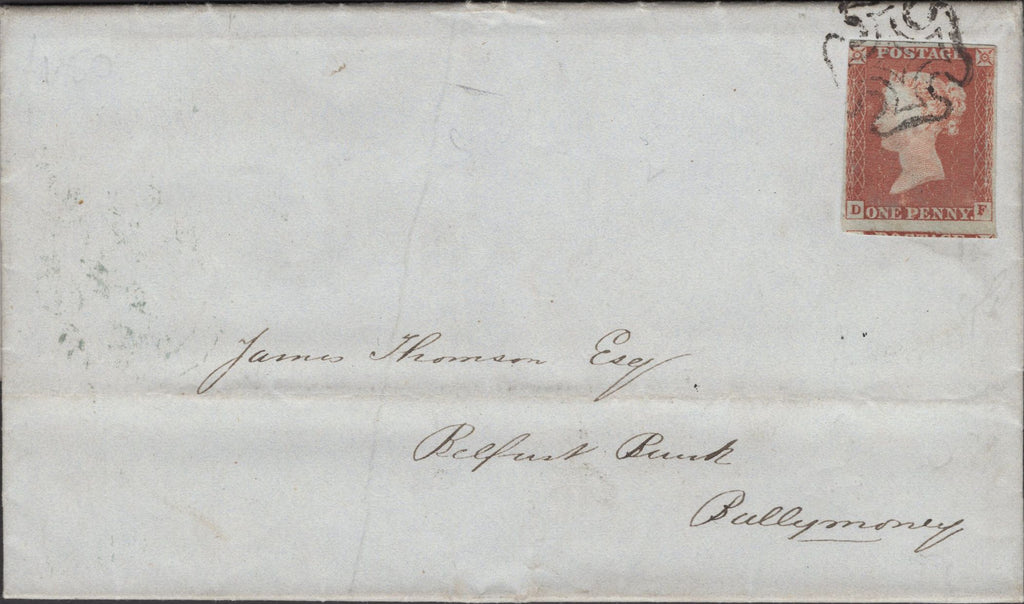 POSTAGE
D ONE PENNY. F
James Thomson Esq
Belfast Bank
Ballymoney